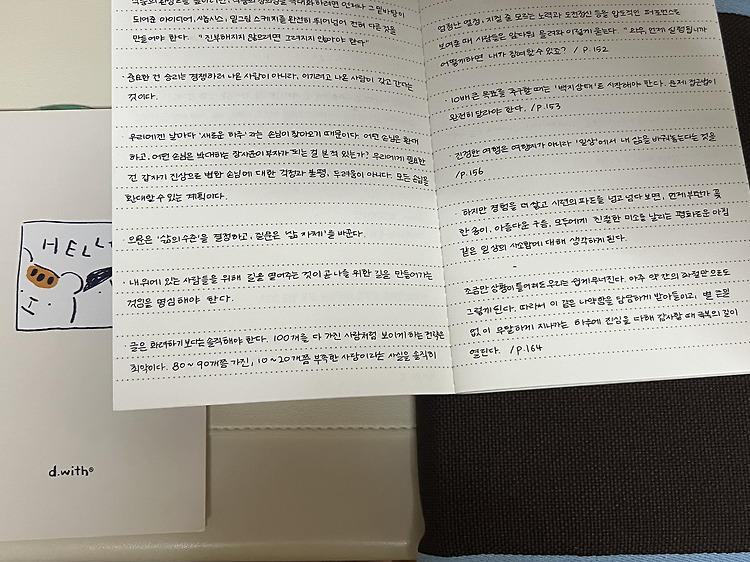 되어준 아이디어, 시놉시스, 밑그림 스케치를 완전히 뛰어넘어 전혀 다른 것을
만들어야 한다. "진부해지지 않으려면 그려지지 않아야 한다"
· 중요한 건 승리는 경쟁하러 나온 사람이 아니라, 이기려고 나온 사람이 갖고 간다는
것이다.
우리에겐 날마다 '새로운 하루'라는 손님이 찾아오기 때문이다. 어떤 손님은 환대
하고, 어떤 손님은 박대하는 장사꾼이 부자가 되는 걸 본 적 있는가? 우리에게 필요한
건 갑자기 진상으로 변한 손님에 대한 걱정과 불평, 두려움이 아니다. 모든 손님을
환대할 수 있는 계획이다.
· 으뜸은 '삶의 수준'을 결정하고, 질문은 '삶 자체'를 바꾼다.
· 내 뒤에 있는 사람들을 위해 길을 열어주는 것이 곧 나를 위한 길을 만들어가는
것임을 명심해야 한다.
글은 화려하기보다는 솔직해야 한다. 100개를 다 가진 사람처럼 보이게 하는 전략은
최악이다. 80~90개쯤 가진, 10~20개쯤 부족한 사람이라는 사실을 솔직히
엄청난 열정, 지칠 줄 모르는 노력과 도전정신 등을 압도적인 퍼포먼스로
보여줄 때 사람들은 앞다퉈 몰려와 이렇게 묻는다. "와우, 언제 실행됩니까
어떻게하면 내가 참여할 수 있죠? / P.152
· 10배 큰 목표를 추구할 때는 '백지상태'로 시작해야 한다. 문제 접근법이
완전히 달라야 한다. / P.153
진정한 여행은 여행지가 아니라 '일상'에서 내 삶을 바꿔놓는다는 것을
/P.156
하지만 경험을 더 쌓고 시련의 파도를 넘고 넘다 보면, 언제부턴가 꽃
한 송이, 아름다운 구름, 모두에게 친절한 미소를 날리는 평화로운 아침
같은 일상의 사소함에 대해 생각하게 된다.
조금만 상황이 틀어져도 우리는 쉽게 무너진다. 아주 약간의 좌절만으로도
그렇게 된다. 따라서 이 같은 나약함을 담담하게 받아들이고, 별 근심
없이 무탈하게 지나가는 하루에 진심을 다해 감사할 때 극복의 길이
열린다. /P.164
HELL
d.with®